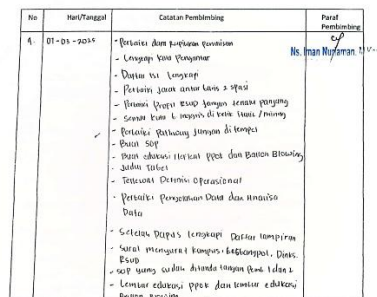 No Hari/Tanggal Catatan Pembimbing Paraf Pembimbing
4. 01-03-2025 - Perbaiki dan rapihkan penulisan
- Lengkapi kata Pengantar
Ns. Iman Nurjaman,
- Daftar isi Lengkapi
- Perbaiki jarak antar baris 2 spasi
- Perbaiki Profil RSUP jangan terlalu panjang
- Semua kata b. inggris di ketik italic / miring
- Perbaiki Pathway jangan di tempel
- Buat SOP
- Buat edukasi PPOK dan Balloon Blowing
- Judul Tabel
- Definisi Operasional
- Perbaiki Pengolahan Data dan Analisa
Data
- Setelah Dapus lengkapi Daftar lampiran
- Surat menyurat kampus, Kesbangpol, Dinkes.
RSUP
- SOP yang sudah ditanda tangan Pemb 1 dan 2
- Lembar edukasi PPOK dan lembar edukasi
Balloon Blowing